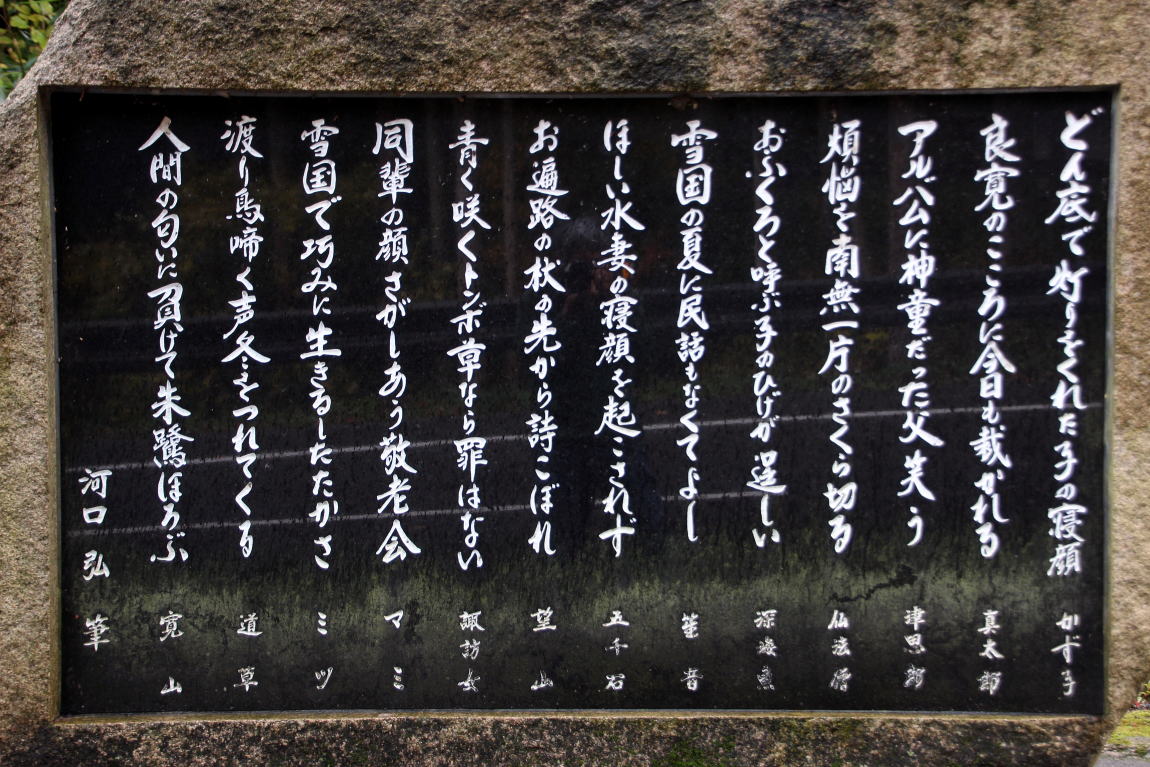 どん底で灯りをくれた子の寝顔 かず子
良寛のこころに今日も裁かれる 真太郎
アルバムに神童だった父笑う 津思郎
煩悩を南無一片のさくら切る 仙法僧
おふくろと呼ぶ子のひげが逞しい 深海魚
雪国の夏に民話もなくてよし 笙音
ほしい水妻の寝顔を起こされず 五千石
お遍路の杖の先から詩こぼれ 望山
青く咲くトンボ草なら罪はない 諏訪女
同輩の顔さがしあう敬老会 マミ
雪国で巧みに生きるしたたかさ ミツ
渡り鳥啼く声冬をつれてくる 道草
人間の匂いに負けて朱鷺ほろぶ 寛山
河口弘筆